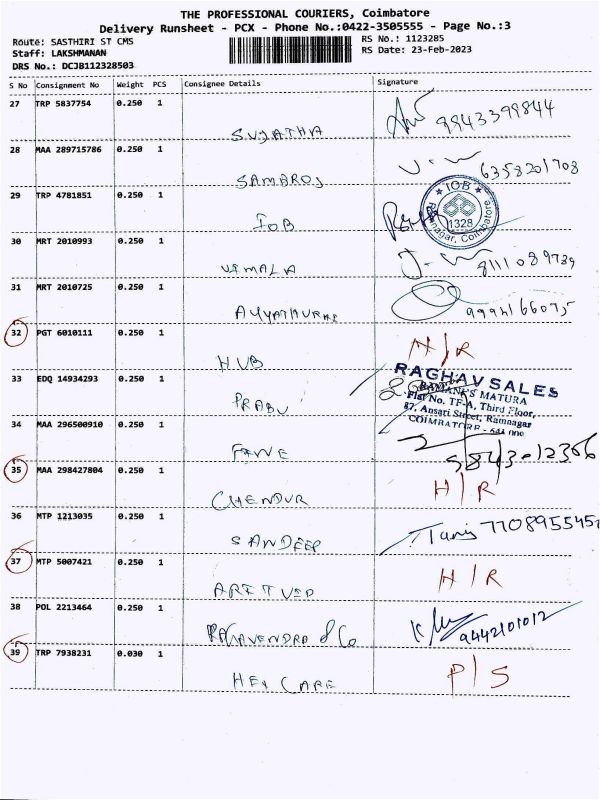 THE PROFESSIONAL COURIERS, Coimbatore
Delivery Runsheet - PCX - Phone No.:0422-3505555 - Page No.:3
Route: SASTHIRI ST CMS
Staff: LAKSHMANAN
DRS No.: DCJB112328503
RS No.: 1123285
RS Date: 23-Feb-2023
S No Consignment No Weight PCS Consignee Details Signature
27 TRP 5837754 0.250 1 SUJATHA 9943399844
28 MAA 289715786 0.250 1 SAMAROJ 6358201708
29 TRP 4781851 0.250 1 IOB
IOB
1328
Ramnagar, Coimbatore
30 MRT 2010993 0.250 1 VIMALA 8111089739
31 MRT 2010725 0.250 1 AYYATHURAI
32 PGT 6010111 0.250 1 HUB H/R
33 EDQ 14934293 0.250 1 PRABU
RAGHAV SALES
MATURA
Flat No. TF-A, Third Floor,
87, Ansari Street, Ramnagar
COIMBATORE - 641 009
34 MAA 296500910 0.250 1
35 MAA 298427804 0.250 1 CHENDUR H/R
36 MTP 1213035 0.250 1 SANDEEP 7708955452
37 MTP 5007421 0.250 1 H/R
38 POL 2213464 0.250 1 RAGAVENDRA & Co 9442101012
39 TRP 7938231 0.030 1 CARE P/S